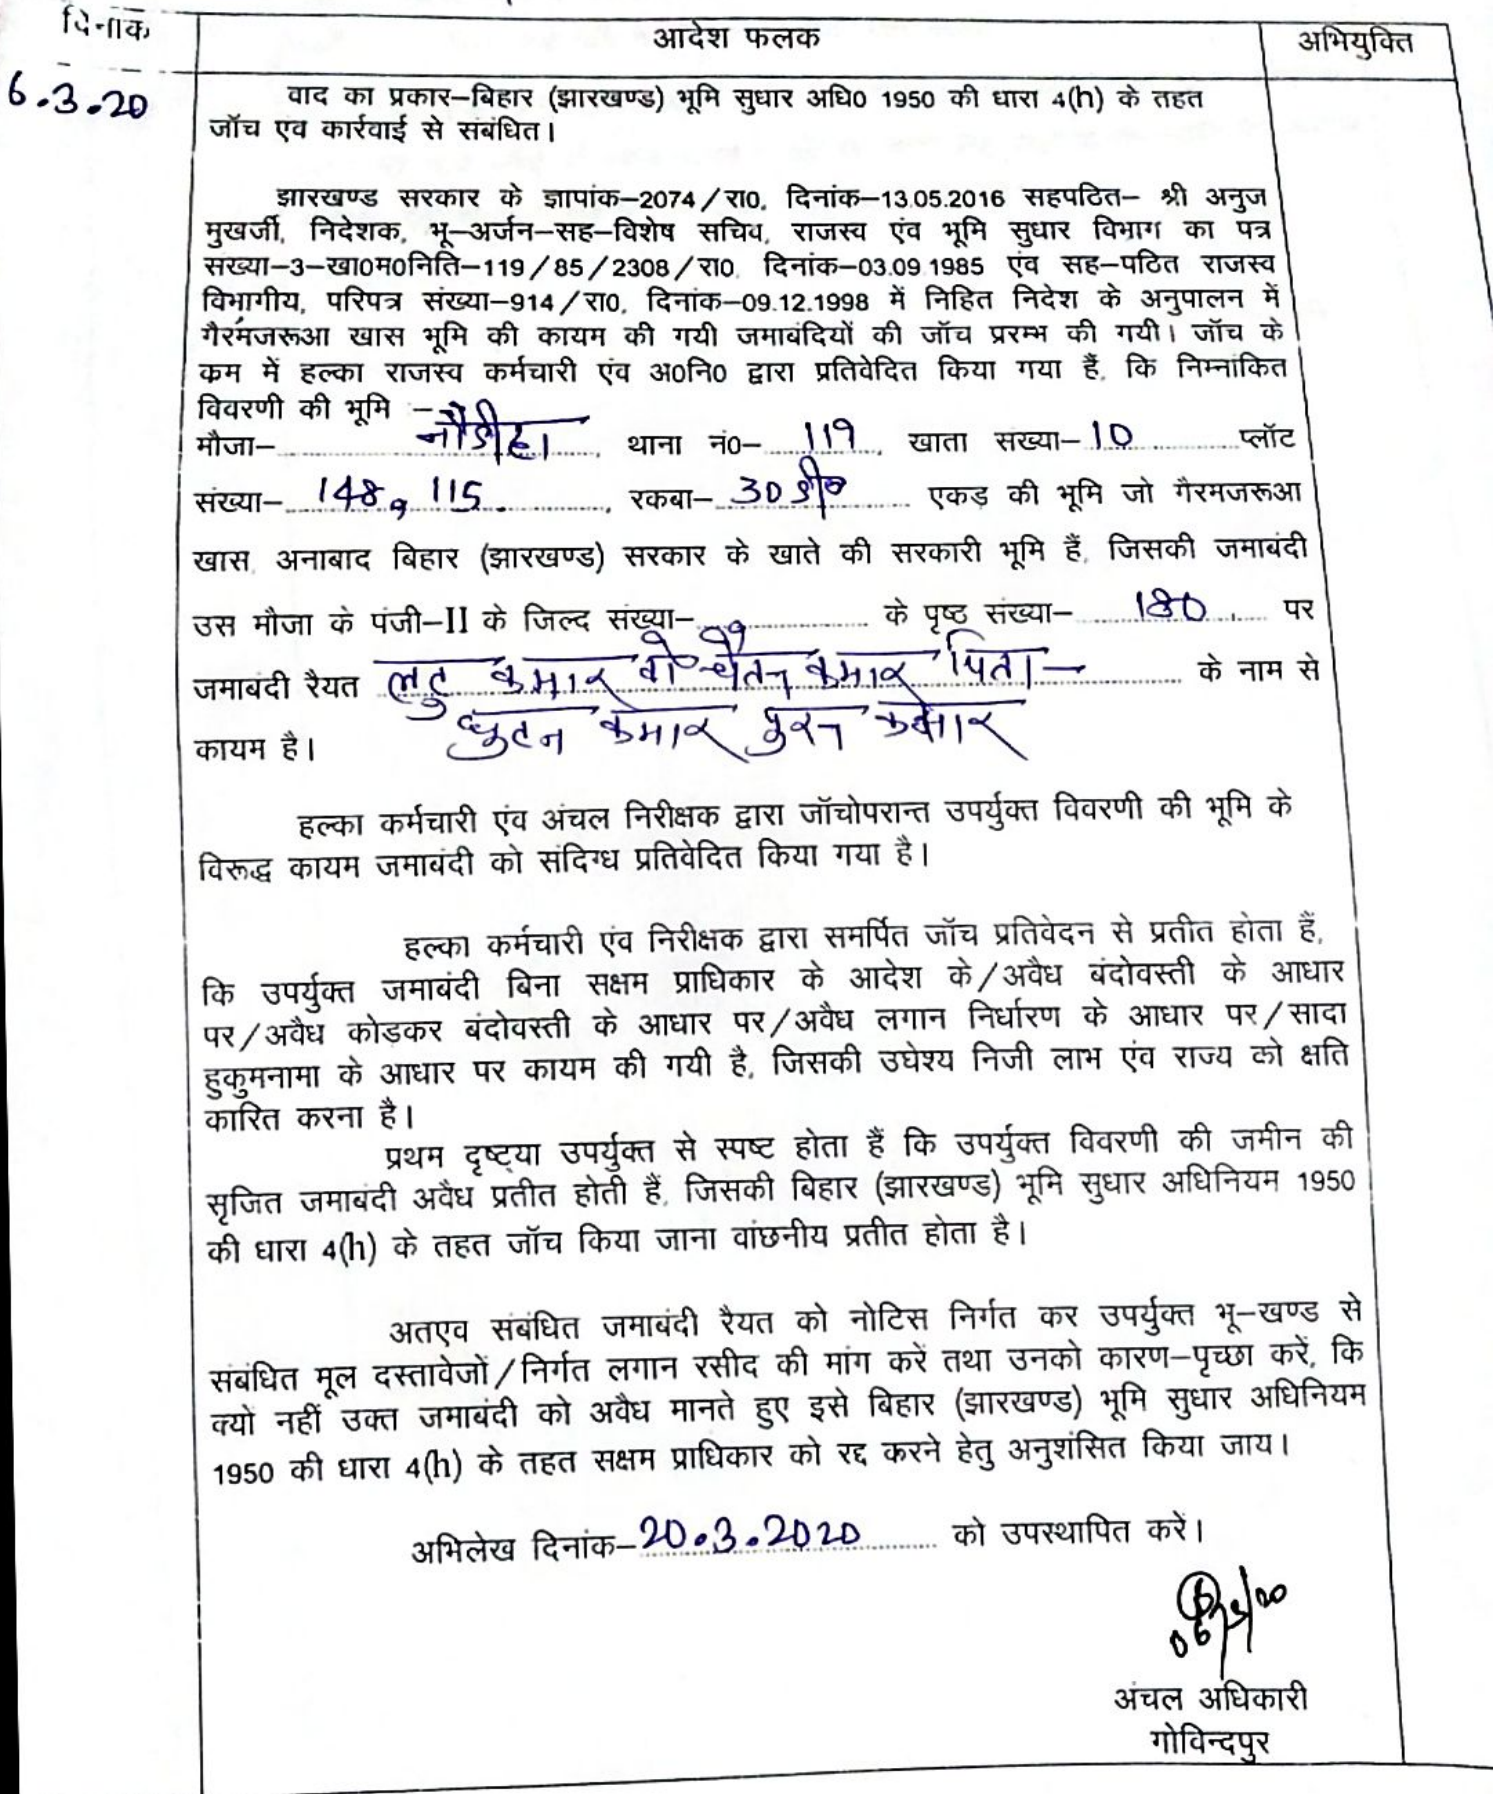 दिनांक
आदेश फलक
अभियुक्ति
6.3.20
वाद का प्रकार–बिहार (झारखण्ड) भूमि सुधार अधि0 1950 की धारा 4(h) के तहत
जॉच एंव कार्रवाई से संबंधित।
झारखण्ड सरकार के ज्ञापांक–2074/रा0, दिनांक–13.05.2016 सहपठित– श्री अनुज
मुखर्जी, निदेशक, भू–अर्जन–सह–विशेष सचिव, राजस्व एंव भूमि सुधार विभाग का पत्र
संख्या–3–खा0म0निति–119/85/2308/रा0, दिनांक–03.09.1985 एंव सह–पठित राजस्व
विभागीय, परिपत्र संख्या–914/रा0, दिनांक–09.12.1998 में निहित निदेश के अनुपालन में
गैरमंजरूआ खास भूमि की कायम की गयी जमाबंदियों की जॉच प्ररम्भ की गयी। जॉच के
कम में हल्का राजस्व कर्मचारी एंव अ0नि0 द्वारा प्रतिवेदित किया गया हैं, कि निम्नांकित
विवरणी की भूमि :–
मौजा– नौडीहा, थाना नं0– 119, खाता संख्या– 10 प्लॉट
संख्या– 148, 115, रकबा– 30 डी0 एकड़ की भूमि जो गैरमजरूआ
खास, अनाबाद बिहार (झारखण्ड) सरकार के खाते की सरकारी भूमि हैं, जिसकी जमाबंदी
उस मौजा के पंजी–II के जिल्द संख्या– के पृष्ठ संख्या– 180 पर
जमाबंदी रैयत लटु कुमार वो चैतन कुमार पिता– के नाम से
कुमार कुमार
कायम है।
हल्का कर्मचारी एंव अंचल निरीक्षक द्वारा जॉचोपरान्त उपर्युक्त विवरणी की भूमि के
विरूद्ध कायम जमाबंदी को संदिग्ध प्रतिवेदित किया गया है।
हल्का कर्मचारी एंव निरीक्षक द्वारा समर्पित जॉच प्रतिवेदन से प्रतीत होता हैं,
कि उपर्युक्त जमाबंदी बिना सक्षम प्राधिकार के आदेश के/अवैध बंदोवस्ती के आधार
पर/अवैध कोड़कर बंदोवस्ती के आधार पर/अवैध लगान निर्धारण के आधार पर/सादा
हुकुमनामा के आधार पर कायम की गयी है, जिसकी उघेश्य निजी लाभ एंव राज्य को क्षति
कारित करना है।
प्रथम दृष्ट्या उपर्युक्त से स्पष्ट होता हैं कि उपर्युक्त विवरणी की जमीन की
सृजित जमाबंदी अवैध प्रतीत होती हैं, जिसकी बिहार (झारखण्ड) भूमि सुधार अधिनियम 1950
की धारा 4(h) के तहत जॉच किया जाना वांछनीय प्रतीत होता है।
अतएव संबंधित जमाबंदी रैयत को नोटिस निर्गत कर उपर्युक्त भू–खण्ड से
संबंधित मूल दस्तावेजों/निर्गत लगान रसीद की मांग करें तथा उनको कारण–पृच्छा करें, कि
क्यों नहीं उक्त जमाबंदी को अवैध मानते हुए इसे बिहार (झारखण्ड) भूमि सुधार अधिनियम
1950 की धारा 4(h) के तहत सक्षम प्राधिकार को रद्द करने हेतु अनुशंसित किया जाय।
अभिलेख दिनांक–20.3.2020 को उपस्थापित करें।
अंचल अधिकारी
गोविन्दपुर